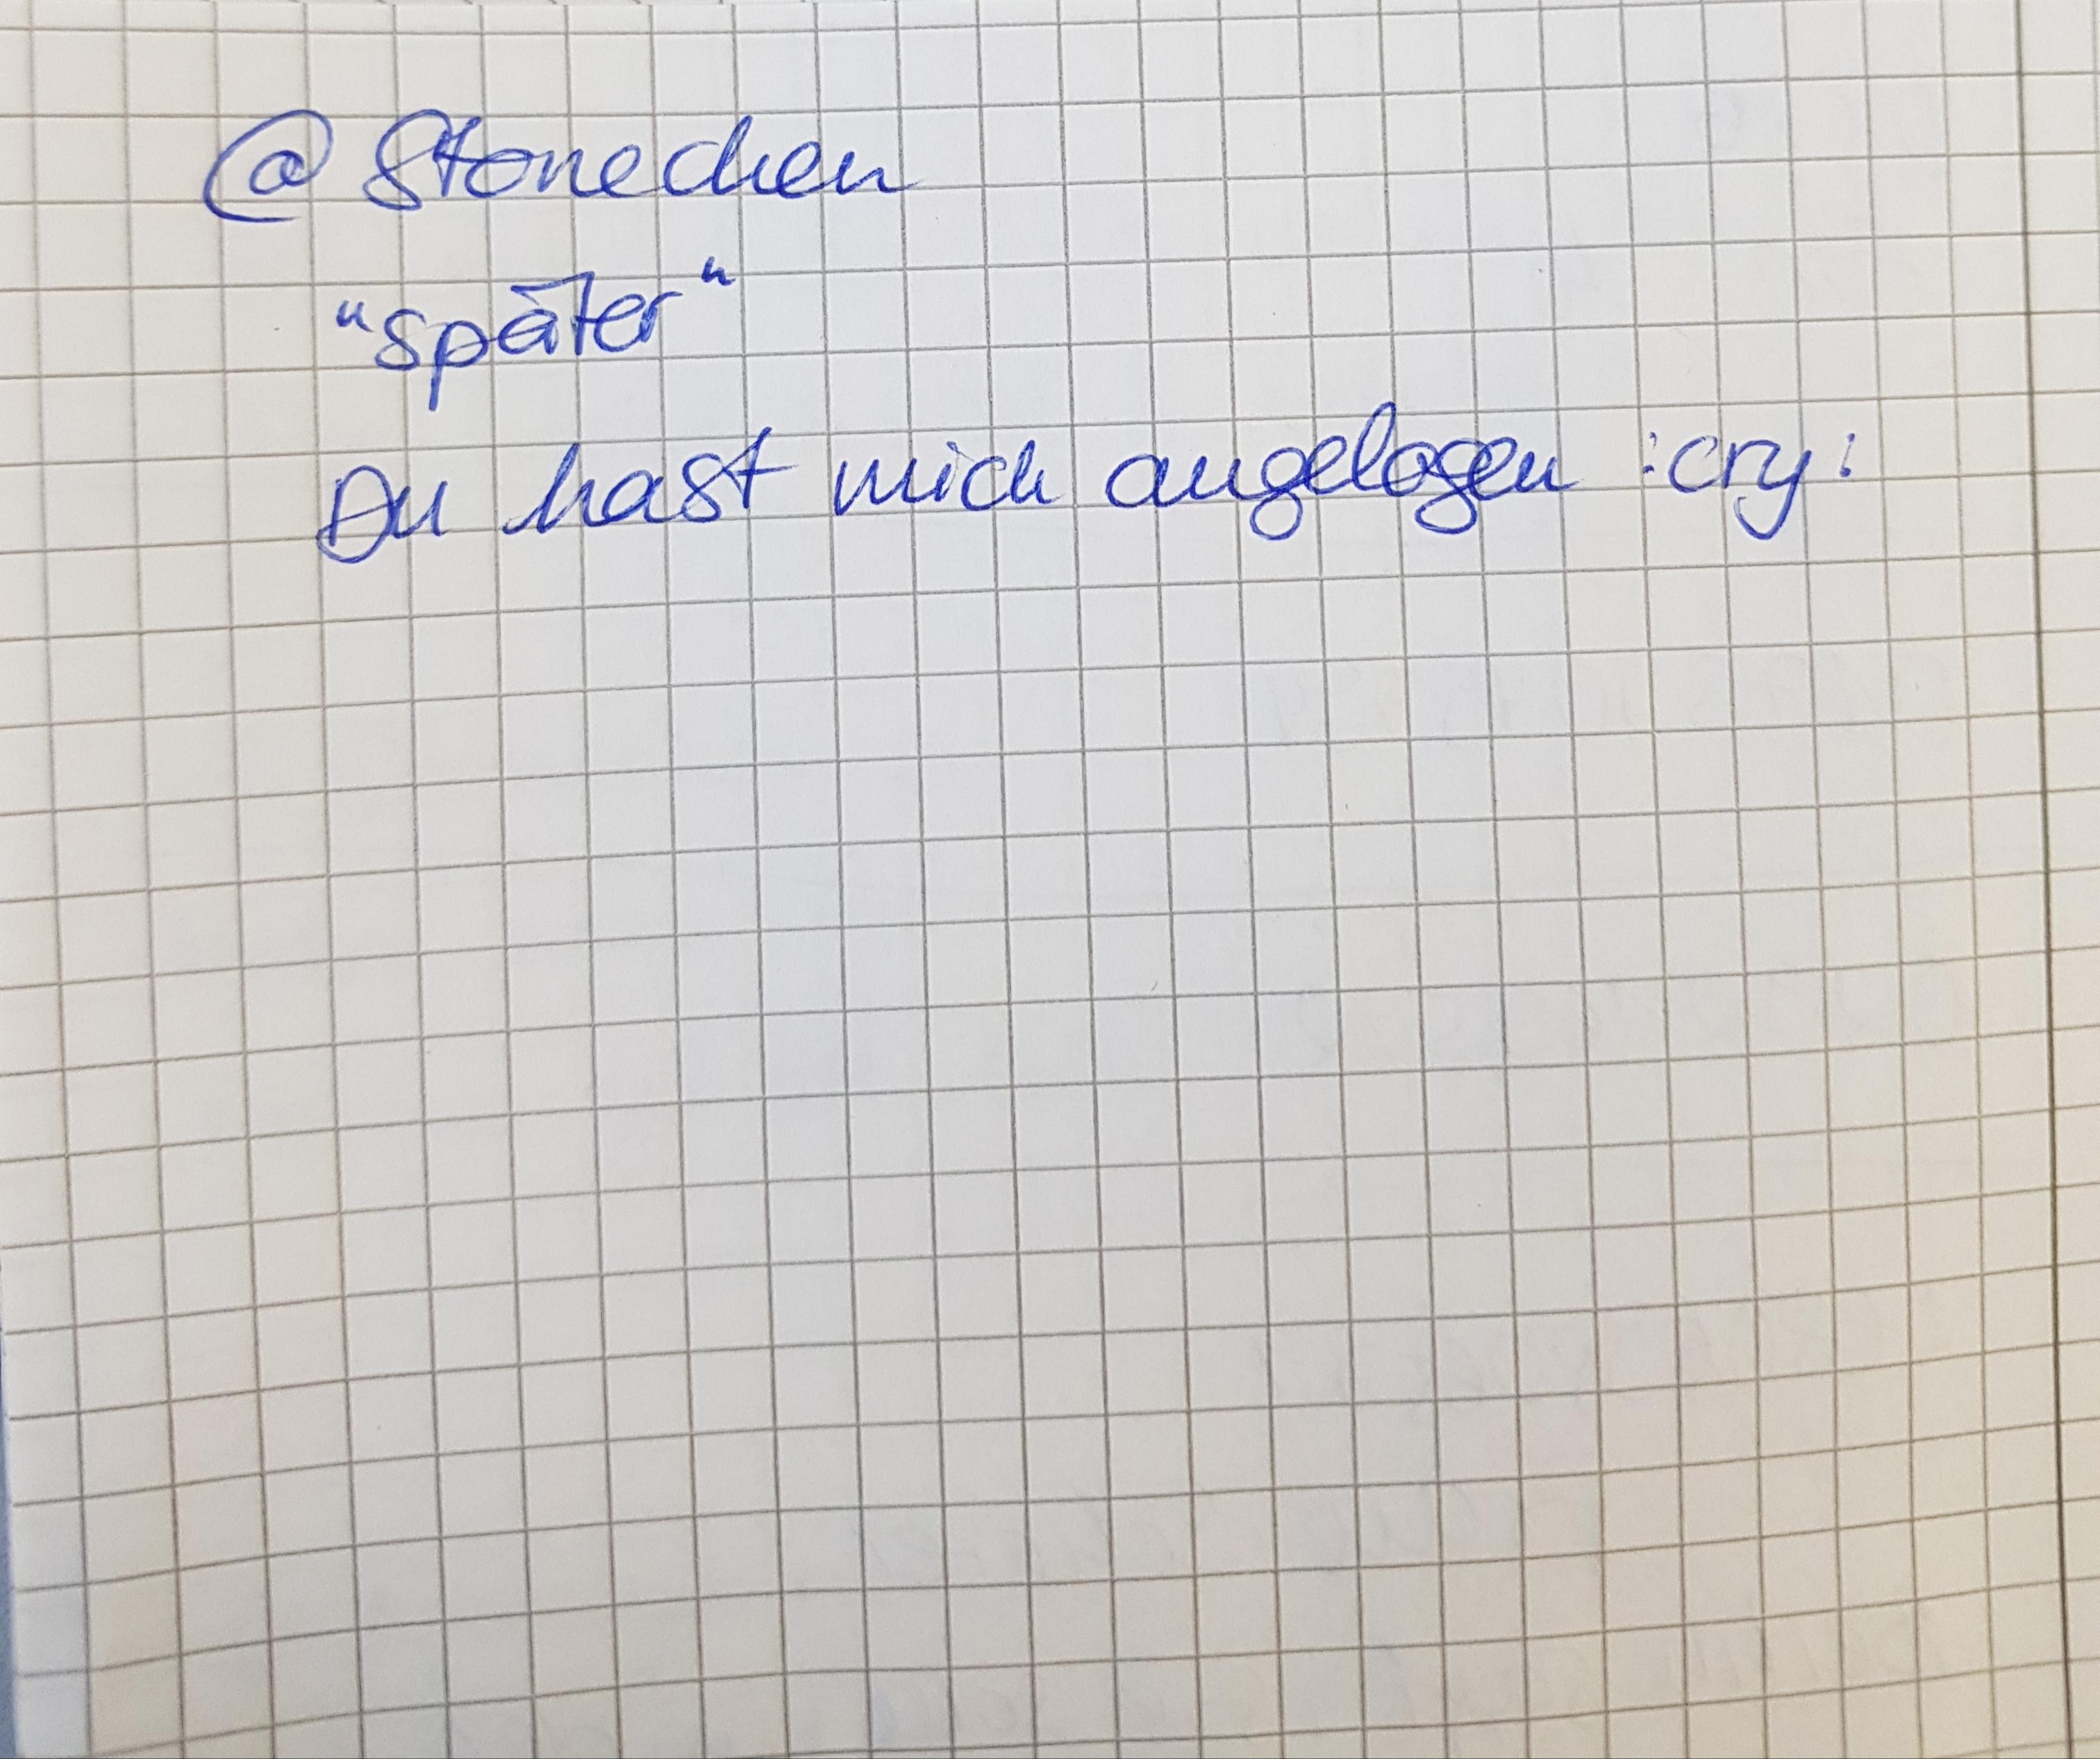 @Stonechen
"später"
Du hast mich angelogen :cry: